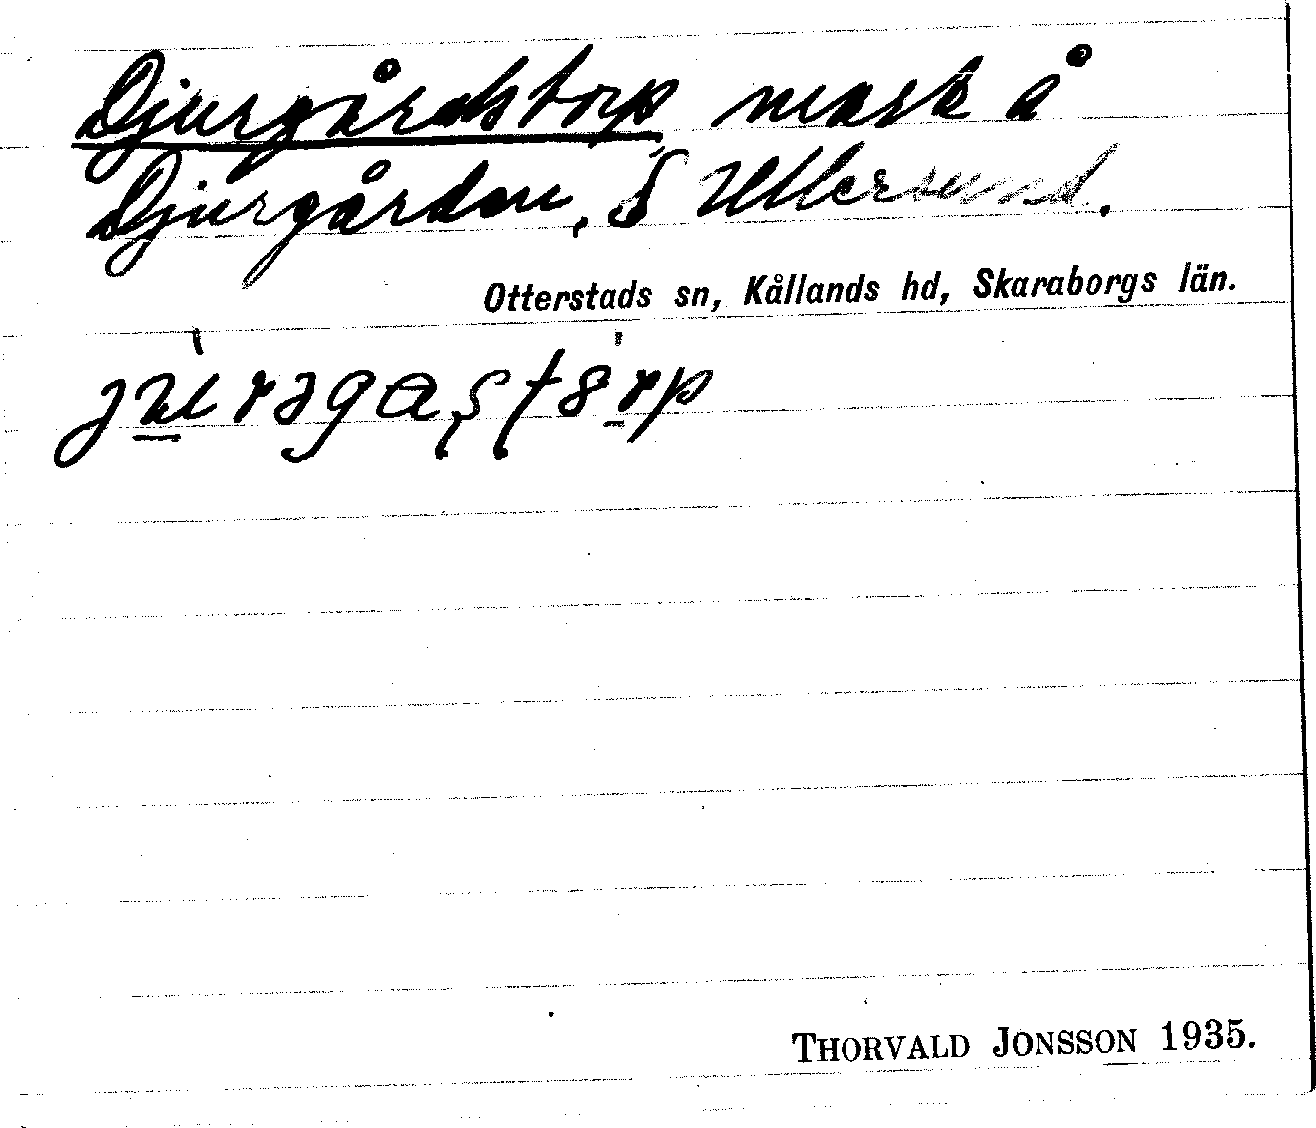 Djurgårdstorp mark å
Djurgården, § Ullersund.
Otterstads sn, Kållands hd, Skaraborgs län.
THORVALD JONSSON 1935.